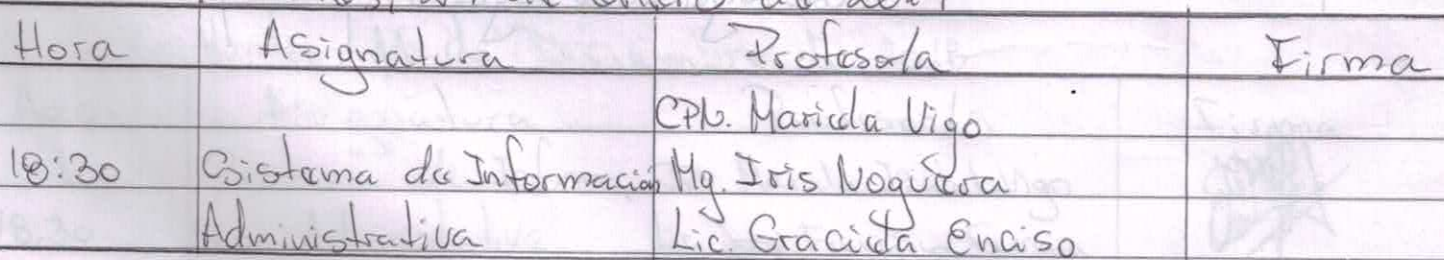 Hora Asignatura Profesor/a Firma
CPN. Mariela Vigo
18:30 Sistema de Información Mg. Iris Noguera
Administrativa Lic. Graciela Enciso